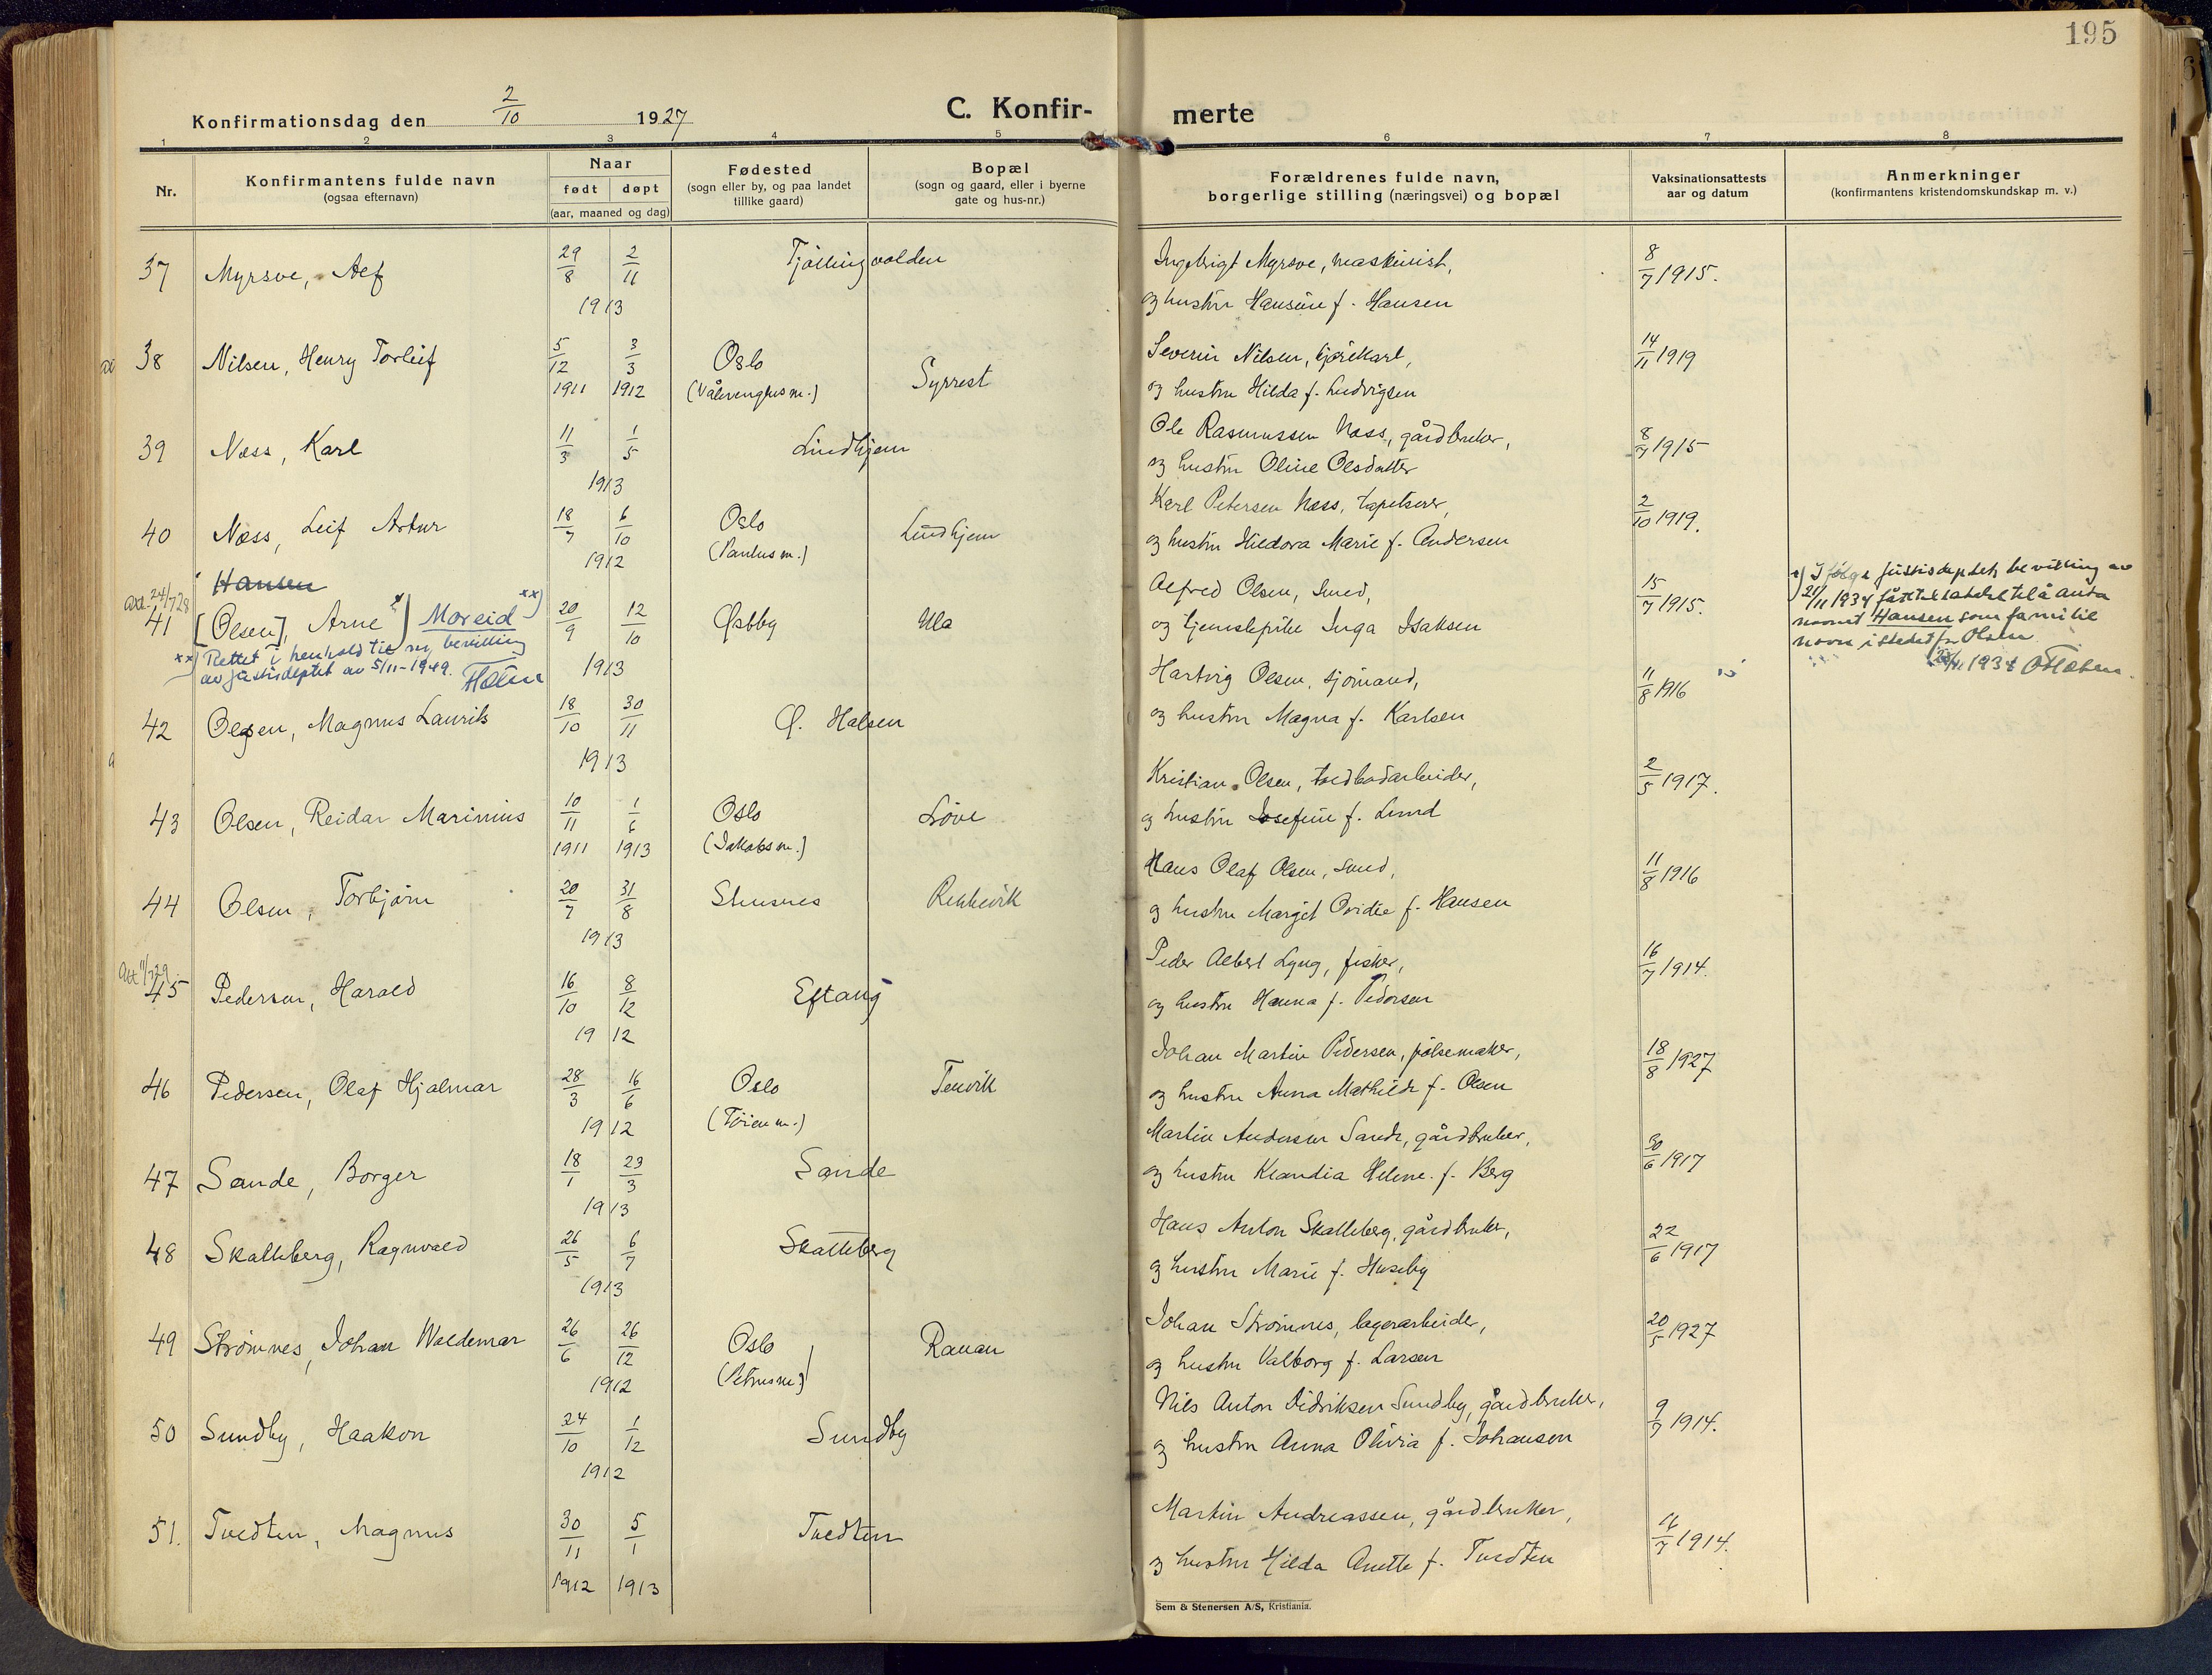 195
Konfirmationsdag den 2/10 1927 C. Konfir- merte
1 2 3 4 5 6 7 8
Nr.
Konfirmantens fulde navn
(ogsaa efternavn)
Naar
født døpt
(aar, maaned og dag)
Fødested
(sogn eller by, og paa landet
tillike gaard)
Bopæl
(sogn og gaard, eller i byerne
gate og hus-nr.)
Forældrenes fulde navn,
borgerlige stilling (næringsvei) og bopæl
Vaksinationsattests
aar og datum
Anmerkninger
(konfirmantens kristendomskundskap m. v.)
37 Myrsve, Alf 29/8 2/11 1913 Tjøllingvolden
Ingebrigt Myrsve, maskinist,
og hustru Hansine f. Hansen
8/7 1915.
38 Nilsen, Henry Torleif 5/12 1911 3/3 1912 Oslo
(Vålerenghus m.) Syrrest
Severin Nilsen, kjørekarl,
og hustru Hilda f. Ludvigsen
14/11 1919
39 Næss, Karl 11/3 1/5 1913 Lindhjem
Ole Rasmussen Næss, gårdbruker,
og hustru Oline Olsdatter
8/7 1915
40 Næss, Leif Artur 18/7 6/10 1912 Oslo
(Paulus m.) Lindhjem
Karl Petersen Næss, tapetserer,
og hustru Hildora Marie f. Andersen
2/10 1919.
Att. 24/7 28
Hansen
41 [Olsen], Arne x) Moreid xx) 20/9 12/10 1913 Østby Ula
xx) Rettet i henhold til bevilling
av justisdeptet av 5/11-1949. Holm
Alfred Olsen, smed,
og tjenestepike Inga Isaksen
15/7 1915.
x) Ifølge justisdeptets bevilling av
21/11 1934 fått tillatelse til å anta
navnet Hansen som familie
navn istedet for Olsen.
1934
42 Olsen, Magnus Laurits 18/10 30/11 1913 Ø. Halsen
Hartvig Olsen, sjømand,
og hustru Magna f. Karlsen
11/8 1916
43 Olsen, Reidar Marinius 10/11 1911 1/6 1913 Oslo
(Jakobs m.) Løve
Kristian Olsen, arbeider,
og hustru Josefine f. Lund
2/5 1917.
44 Olsen, Torbjørn 20/7 31/8 1913 Stusnes Rekkevik
Hans Olaf Olsen, smed,
og hustru Margit Ovidie f. Hansen
11/8 1916
Att 11/7 29
45 Pedersen, Harald 16/10 8/12 1912 Eftang
Peder Albert Lyng, fisker,
og hustru Hanna f. Pedersen
16/7 1914.
46 Pedersen, Olaf Hjalmar 28/3 16/6 1912 Oslo
(Tøien m.) Tenvik
Johan Martin Pedersen, pølsemaker,
og hustru Anna Mathilde f. Olsen
18/8 1927
47 Sande, Borger 18/1 23/3 1913 Sande
Martin Andersen Sande, gårdbruker,
og hustru Klandia Helene f. Berg
30/6 1917
48 Skalleberg, Ragnvald 26/5 6/7 1913 Skalleberg
Hans Anton Skalleberg, gårdbruker,
og hustru Marie f. Huseby
22/6 1917
49 Strømnes, Johan Waldemar 26/6 26/12 1912 Oslo
(Petrus m.) Rauan
Johan Strømnes, lagerarbeider,
og hustru Valborg f. Larsen
20/5 1927
50 Sundby, Haakon 24/10 1/12 1912 Sundby
Nils Anton Didriksen Sundby, gårdbruker,
og hustru Anna Olivia f. Johansen
9/7 1914.
51. Tvedten, Magnus 30/11 1912 5/1 1913 Tvedten
Martin Andreassen, gårdbruker,
og hustru Hilda Anette f. Tvedten
1914.
Sem & Stenersen A/S, Kristiania.